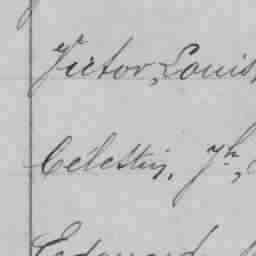 Victor, Louis,
Célestin, Jh,
Edouard